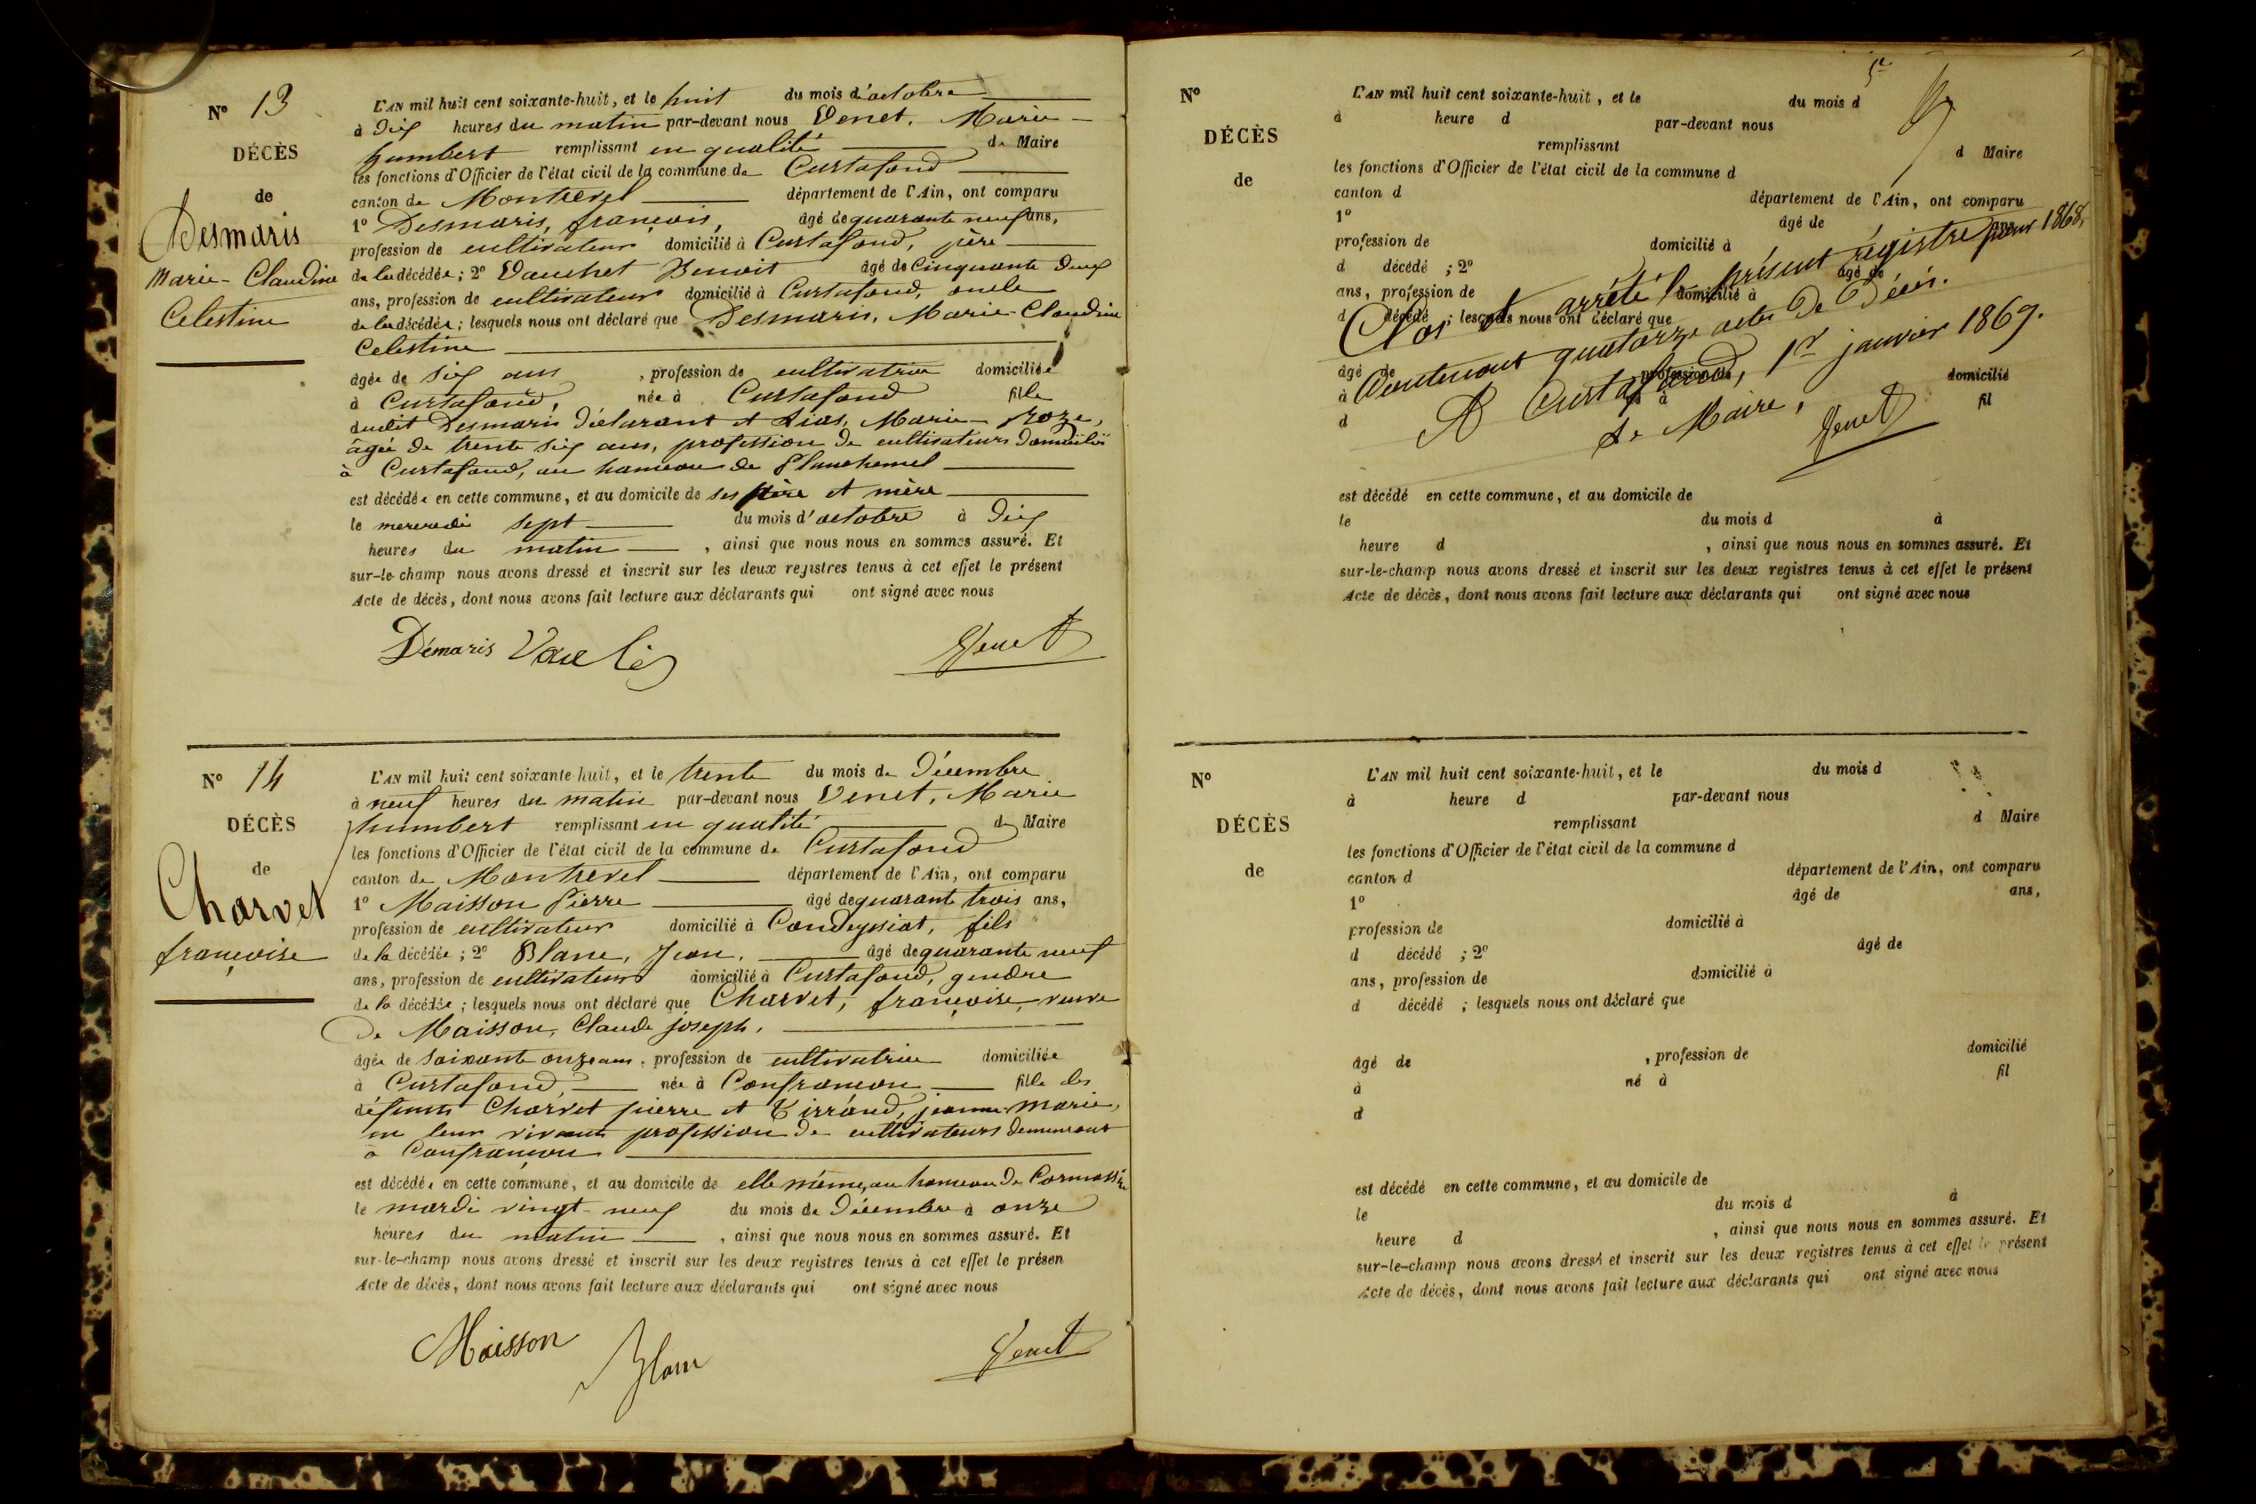 N° 13
DÉCÈS
de
Desmaris
Marie-Claudine
Celestine
L'AN mil huit cent soixante-huit, et le huit du mois d'octobre
à dix heures du matin par-devant nous Venet, Marie
humbert remplissant en qualité de Maire
les fonctions d'Officier de l'état civil de la commune de Curtafond
canton de Montrevel département de l'Ain, ont comparu
1° Desmaris, françois, âgé de quarante neuf ans,
profession de cultivateur domicilié à Curtafond, père
de la décédée ; 2° Vauchet Benoit âgé de Cinquante deux
ans, profession de cultivateur domicilié à Curtafond, oncle
de la décédée ; lesquels nous ont déclaré que Desmaris, Marie-Claudine
Celestine
âgée de six ans , profession de cultivatrice domiciliée
à Curtafond, née à Curtafond fille
dudit Desmaris déclarant et Lias, Marie-Roze,
âgée de trente six ans, profession de cultivateurs domiciliés
à Curtafond, au hameau de
est décédée en cette commune, et au domicile de ses père et mère
le mercredi sept du mois d'octobre à dix
heures du matin , ainsi que nous nous en sommes assuré. Et
sur-le-champ nous avons dressé et inscrit sur les deux registres tenus à cet effet le présent
Acte de décès, dont nous avons fait lecture aux déclarants qui ont signé avec nous
Démaris Venet
N° 14
DÉCÈS
de
Charvet
françoise
L'AN mil huit cent soixante-huit, et le trente du mois de Décembre
à neuf heures du matin par-devant nous Venet, Marie
humbert remplissant en qualité de Maire
les fonctions d'Officier de l'état civil de la commune de Curtafond
canton de Montrevel département de l'Ain, ont comparu
1° Maisson Pierre âgé de quarante trois ans,
profession de cultivateur domicilié à Condeyssiat, fils
de la décédée ; 2° Blanc, Jean, âgé de quarante neuf
ans, profession de cultivateur domicilié à Curtafond, gendre
de la décédée ; lesquels nous ont déclaré que Charvet, françoise, veuve
de Maisson, Claude joseph,
âgée de soixante onze ans, profession de cultivatrice domiciliée
à Curtafond, née à Confrançon fille des
défunts Charvet pierre et jeanne-marie,
en leur vivant profession de cultivateurs demeurant
à Confrançon
est décédée en cette commune, et au domicile de elle même, au hameau de
le mardi vingt-neuf du mois de Décembre à onze
heures du matin , ainsi que nous nous en sommes assuré. Et
sur-le-champ nous avons dressé et inscrit sur les deux registres tenus à cet effet le présen
Acte de décès, dont nous avons fait lecture aux déclarants qui ont signé avec nous
Maisson Blanc Venet
N°
DÉCÈS
de
L'AN mil huit cent soixante-huit, et le du mois d
à heure d par-devant nous
remplissant d Maire
les fonctions d'Officier de l'état civil de la commune d
canton d département de l'Ain, ont comparu
1° âgé de ans,
profession de domicilié à
d décédé ; 2° âgé de
ans, profession de domicilié à
d décédé ; lesquels nous ont déclaré que
Clos et arrêté le présent régistre pour 1868,
Contenant quatorze actes de Décès.
A Curtafond, 1er janvier 1869.
Le Maire,
Venet
âgé de profession de domicilié
à né à fil
d
est décédé en cette commune, et au domicile de
le du mois d à
heure d , ainsi que nous nous en sommes assuré. Et
sur-le-champ nous avons dressé et inscrit sur les deux registres tenus à cet effet le présent
Acte de décès, dont nous avons fait lecture aux déclarants qui ont signé avec nous
N°
DÉCÈS
de
L'AN mil huit cent soixante-huit, et le du mois d
à heure d par-devant nous
remplissant d Maire
les fonctions d'Officier de l'état civil de la commune d
canton d département de l'Ain, ont comparu
1° âgé de ans,
profession de domicilié à
d décédé ; 2° âgé de
ans, profession de domicilié à
d décédé ; lesquels nous ont déclaré que
âgé de , profession de domicilié
à né à fil
d
est décédé en cette commune, et au domicile de
le du mois d à
heure d , ainsi que nous nous en sommes assuré. Et
sur-le-champ nous avons dressé et inscrit sur les deux registres tenus à cet effet le présent
Acte de décès, dont nous avons fait lecture aux déclarants qui ont signé avec nous